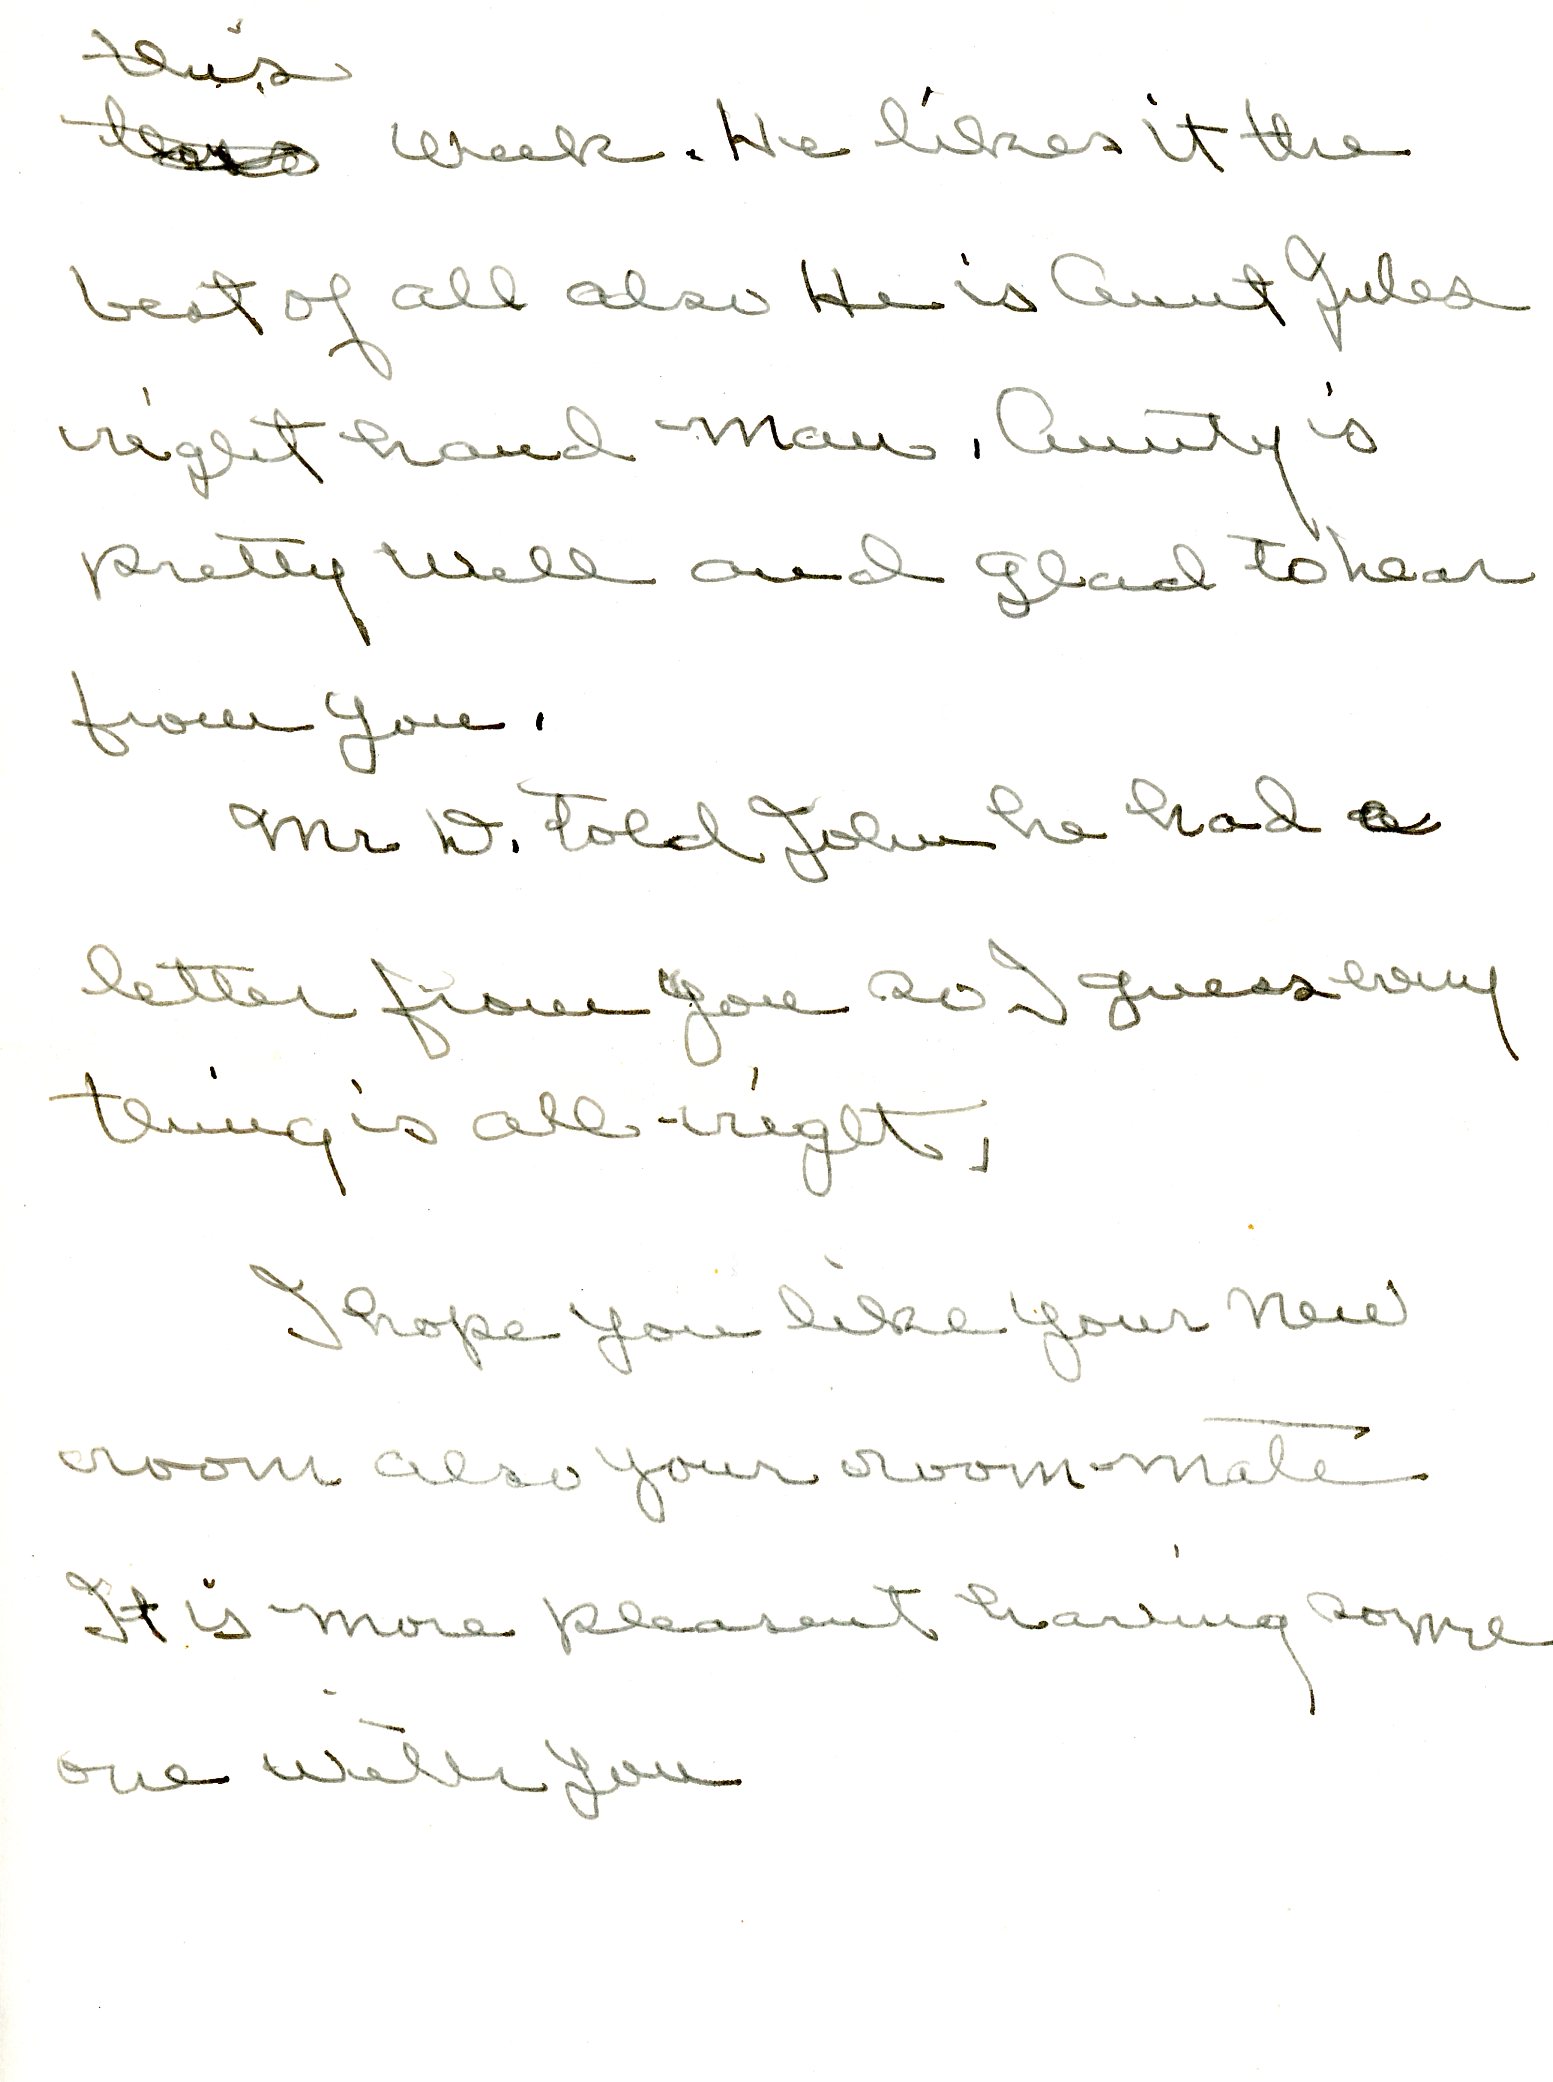 this
week. He likes it the
best of all also He is Aunt Jules
right hand man. Aunty is
pretty well and glad to hear
from you.
Mr D. told John he had a
letter from you so I guess every
thing is all-right.
I hope you like your new
room also your room-mate
It is more pleasent having some
one with you